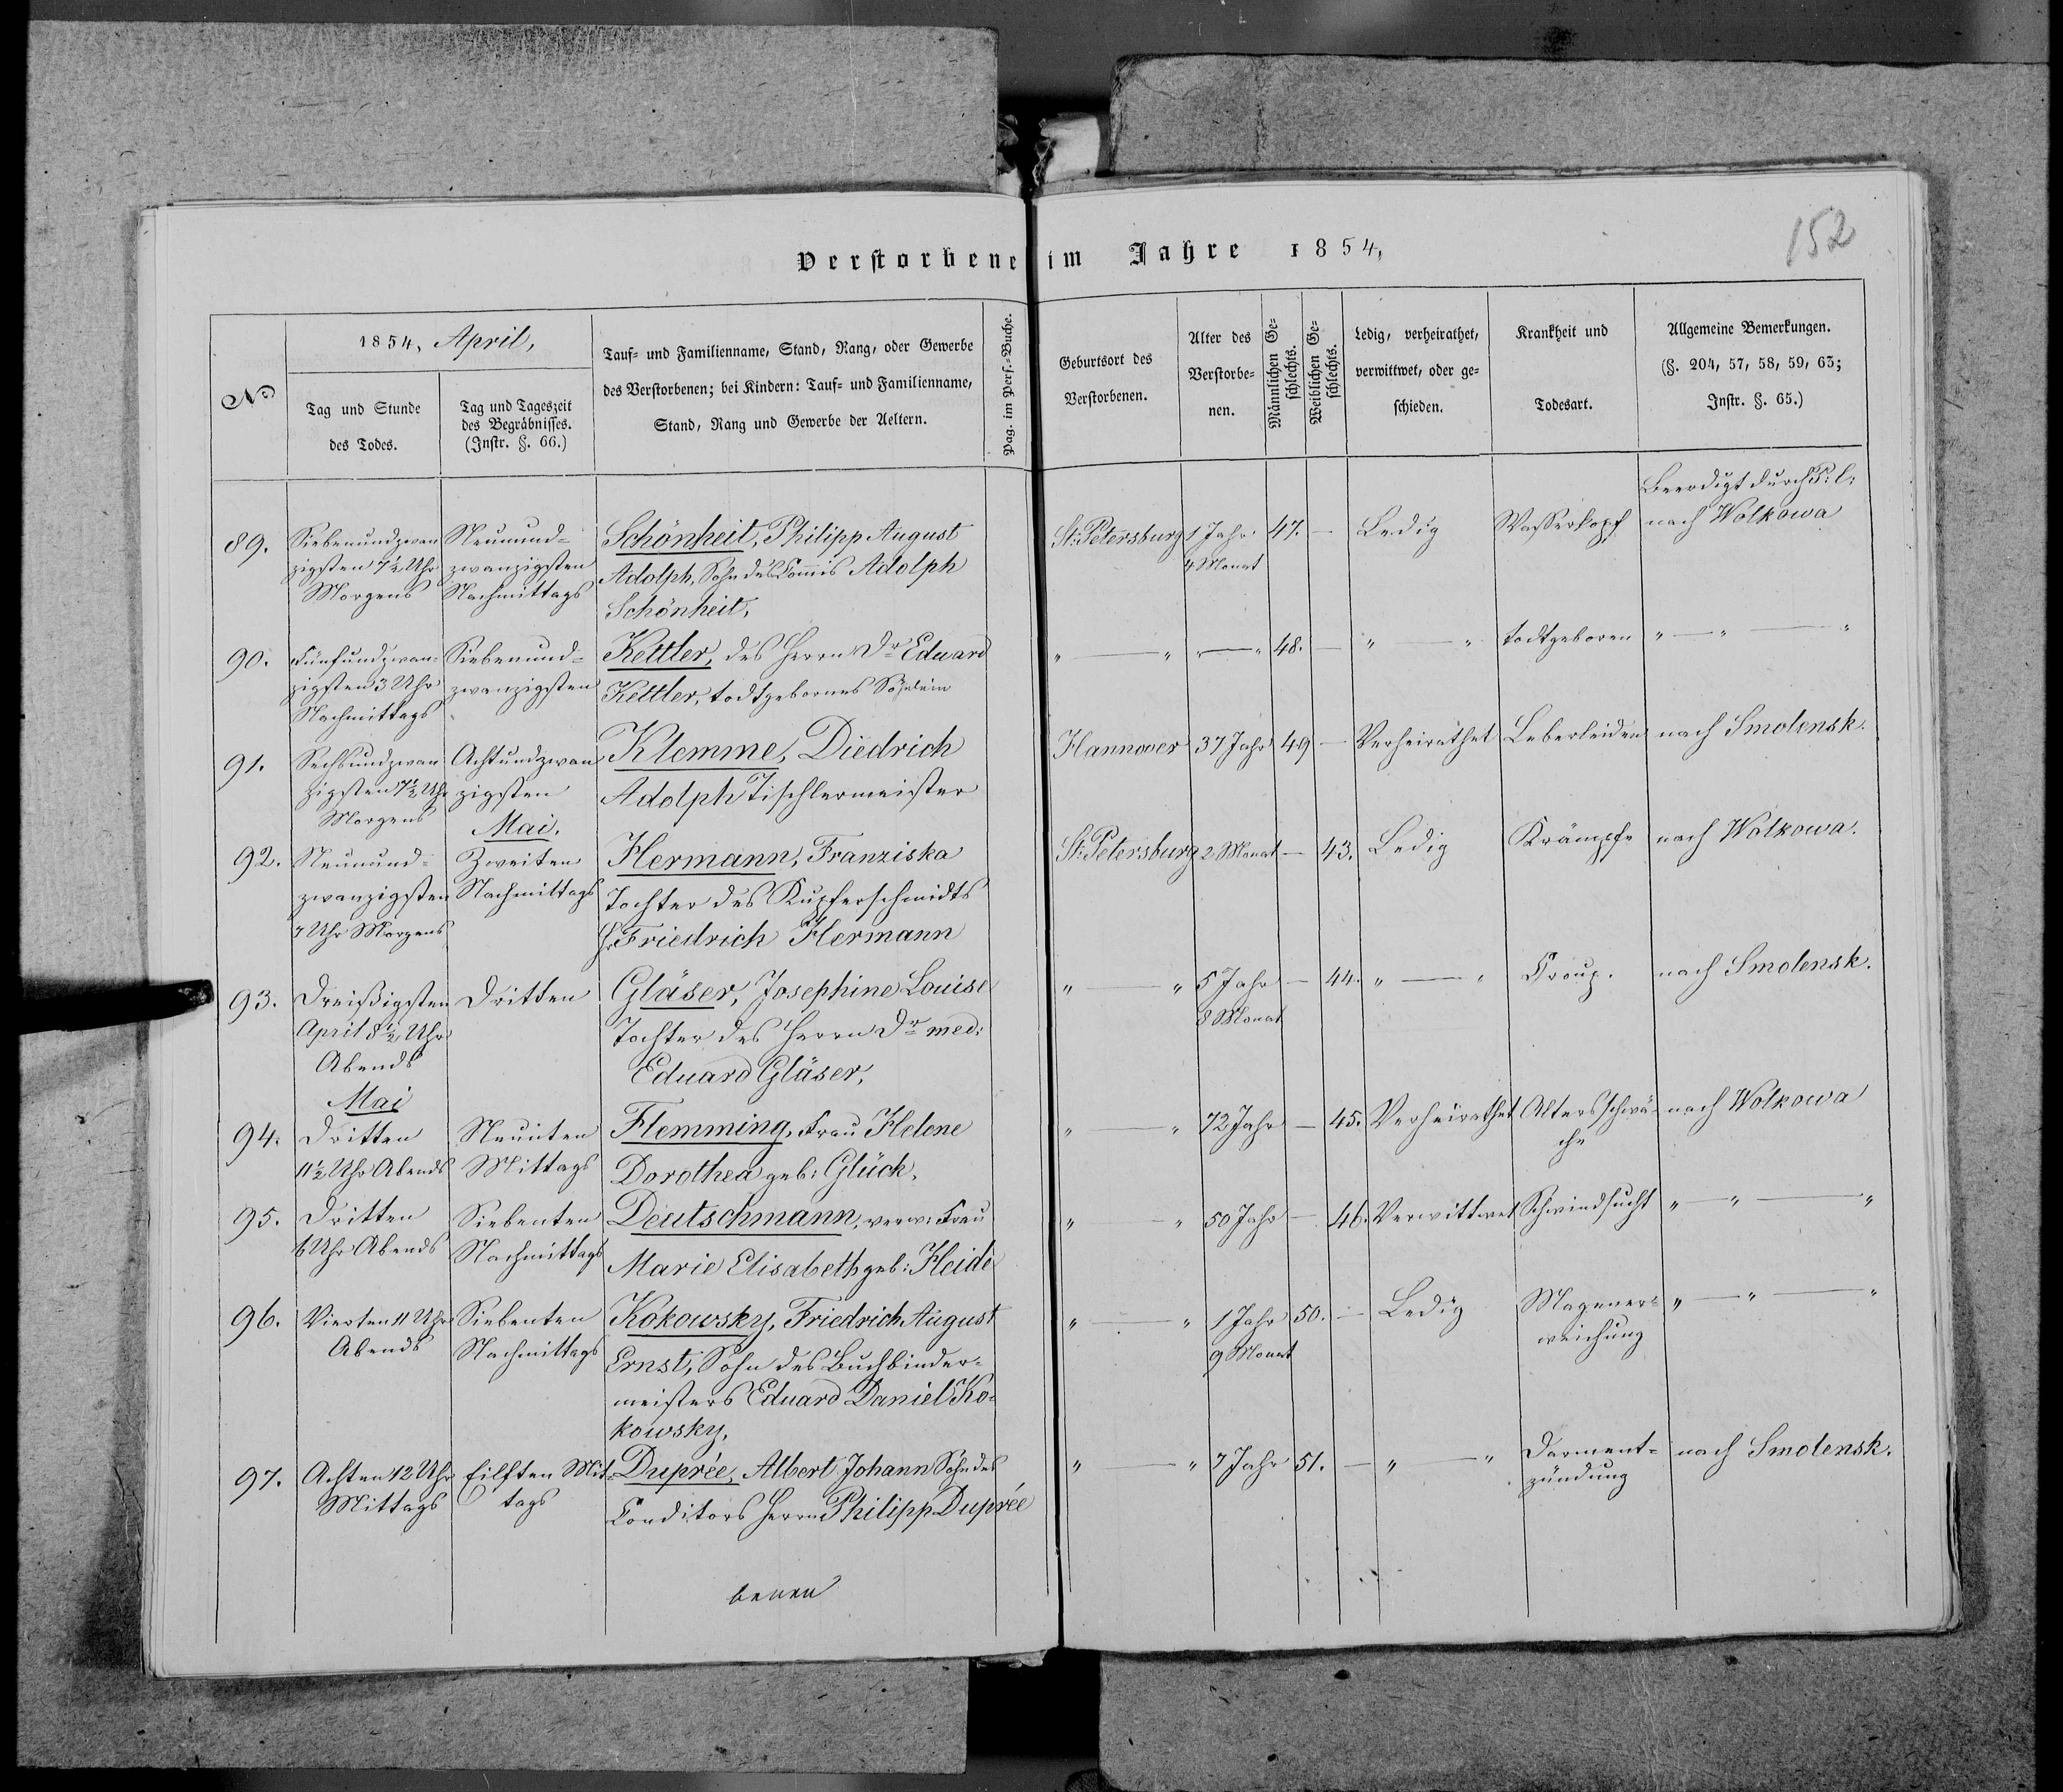 152
Verstorbene im Jahre 1854,
No
1854, April,
Tag und Stunde
des Todes.
Tag und Tageszeit
des Begräbnisses.
(Instr. §. 66.)
Tauf- und Familienname, Stand, Rang, oder Gewerbe
des Verstorbenen; bei Kindern: Tauf- und Familienname,
Stand, Rang und Gewerbe der Aeltern.
Pag. im Pers.-Buche.
Geburtsort des
Verstorbenen.
Alter des
Verstorbe-
nen.
Männlichen Ge-
schlechts.
Weiblichen Ge-
schlechts.
Ledig, verheirathet,
verwittwet, oder ge-
schieden.
Krankheit und
Todesart.
Allgemeine Bemerkungen.
(§. 204, 57, 58, 59, 63;
Instr. §. 65.)
89.
Siebenundzwan
zigsten 7½ Uhr
Morgens
Neunund-
zwanzigsten
Nachmittags
Schönheit, Philipp August
Adolph, Sohn des Commis Adolph
Schönheit,
St: Petersburg
1 Jahr
4 Monat
47. —
Ledig
Wasserkopf
Beerdigt durch P: l:
nach Wolkowa
90.
Fünfundzwan-
zigsten 3 Uhr
Nachmittags
Siebenund-
zwanzigsten
Kettler, des Herrn Dr Eduard
Kettler, todtgebornes Söhnlein
" — " " — " 48. — " — "
todtgeboren
" — " — "
91.
Sechsundzwan
zigsten 7½ Uhr
Morgens
Achtundzwan
zigsten
Klemme, Diedrich
Adolph Tischlermeister
Hannover
37 Jahr
49 —
Verheirathet
Leberleiden
nach Smolensk.
92.
Neunund-
zwanzigsten
7 Uhr Morgens
Mai.
Zweiten
Nachmittags
Hermann, Franziska
Tochter des Kupferschmidts
H. Friedrich Hermann
St: Petersburg
2 Monat
— 43.
Ledig
Krämpfe
nach Wolkowa.
93.
Dreißigsten
April 8½ Uhr
Abends
Dritten
Gläser, Josephine Louise
Tochter des Herrn Dr med:
Eduard Gläser,
" — "
5 Jahr
8 Monat
— 44.
" — "
Croup.
nach Smolensk.
94.
Mai
Dritten
11½ Uhr Abends
Neunten
Mittags
Flemming, Frau Helene
Dorothea geb: Glück.
" — "
72 Jahr
— 45.
Verheirathet
Altersschwä-
che
nach Wolkowa
95.
Dritten
6 Uhr Abends
Siebenten
Nachmittags
Deutschmann, verw: Frau
Marie Elisabeth geb: Heide
" — "
50 Jahr
— 46.
Verwittwet
Schwindsucht
" — " — "
96.
Vierten 11 Uhr
Abends
Siebenten
Nachmittags
Kokowsky, Friedrich August
Ernst, Sohn des Buchbinder-
meisters Eduard Daniel Ko-
kowsky,
" — "
1 Jahr
9 Monat
50. —
Ledig
Magener-
weichung
" — " — "
97.
Achten 12 Uhr
Mittags
Eilften Mit-
tags
Duprée, Albert Johann Sohn des
Conditors Herrn Philipp Duprée
" — "
7 Jahr
51. —
" — "
Darment-
zündung
nach Smolensk.